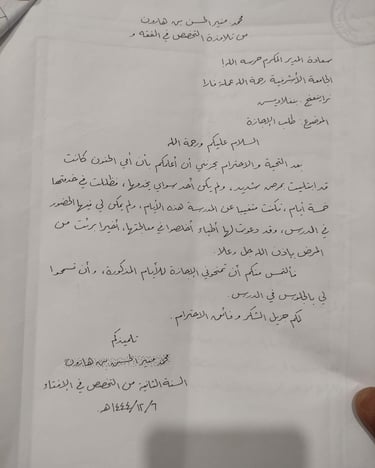 محمد منير الحسن بن هارون
من تلامذة التخصص في الفقه و
سعادة المدير المكرم حرسه الله!
الجامعة الأشرفية رحمة الله
نراينغنج، بنغلاديش
الموضوع: طلب الإجازة
السلام عليكم ورحمة الله
بعد التحية والاحترام يحزنني أن أعلمكم بأن أمي الحنون كانت
قد ابتليت بمرض شديد. ولم يكن أحد سواي يخدمها، فظللت في خدمتها
خمسة أيام، فكنت متغيبا عن المدرسة هذه الأيام، ولم يكن لي فيها الحضور
في الدرس، وقد دعوت لها أطباء أخلصوا في معالجتها. أخيرا برئت من
المرض بإذن الله جل وعلا.
فألتمس منكم أن تمنحوني الإجازة للأيام المذكورة، وأن تسمحوا
لي بالجلوس في الدرس.
لكم جزيل الشكر وفائق الاحترام.
تلميذكم
محمد منير الحسن بن هارون
السنة الثانية من التخصص في الإفتاء
٦/١٢/١٤٤٤هـ